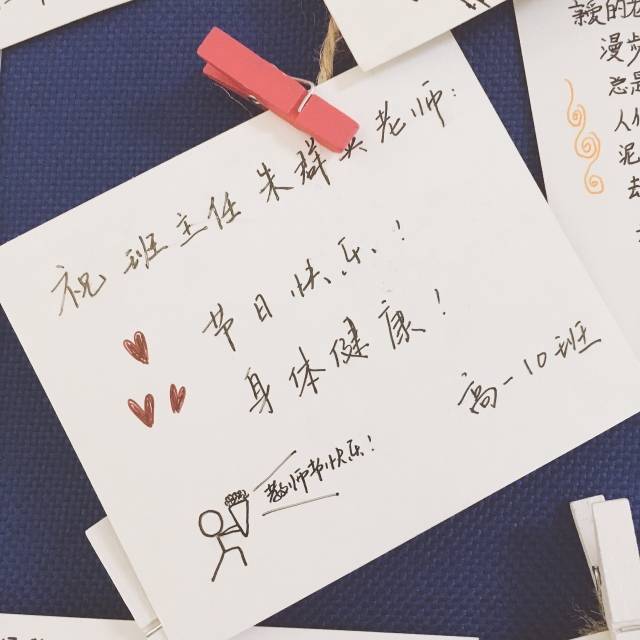 祝班主任朱群英老师:
节日快乐!
身体健康!
高一10班
教师节快乐!
亲爱的老
漫步
人
泥
去